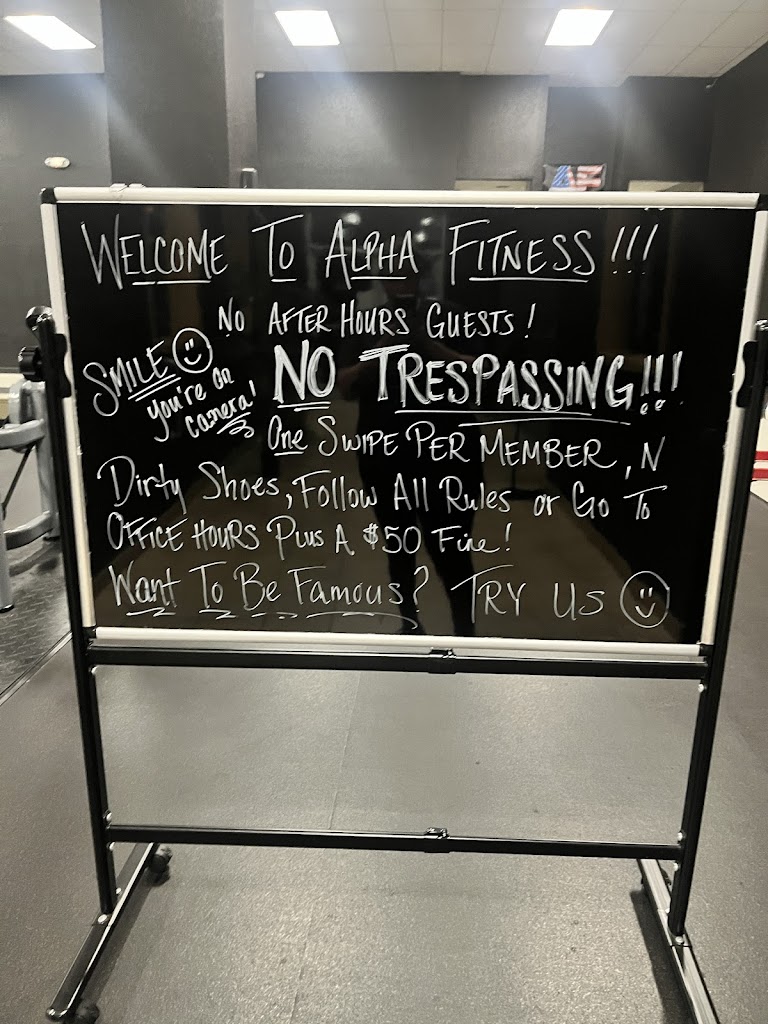 WELCOME TO ALPHA FITNESS!!!
NO AFTER HOURS GUESTS!
SMILE
you're on
camera!
NO TRESPASSING!!!
One SWIPE PER MEMBER, N
Dirty Shoes, Follow All Rules or Go To
OFFICE HOURS Plus A $50 Fine!
Want To Be Famous? TRY US